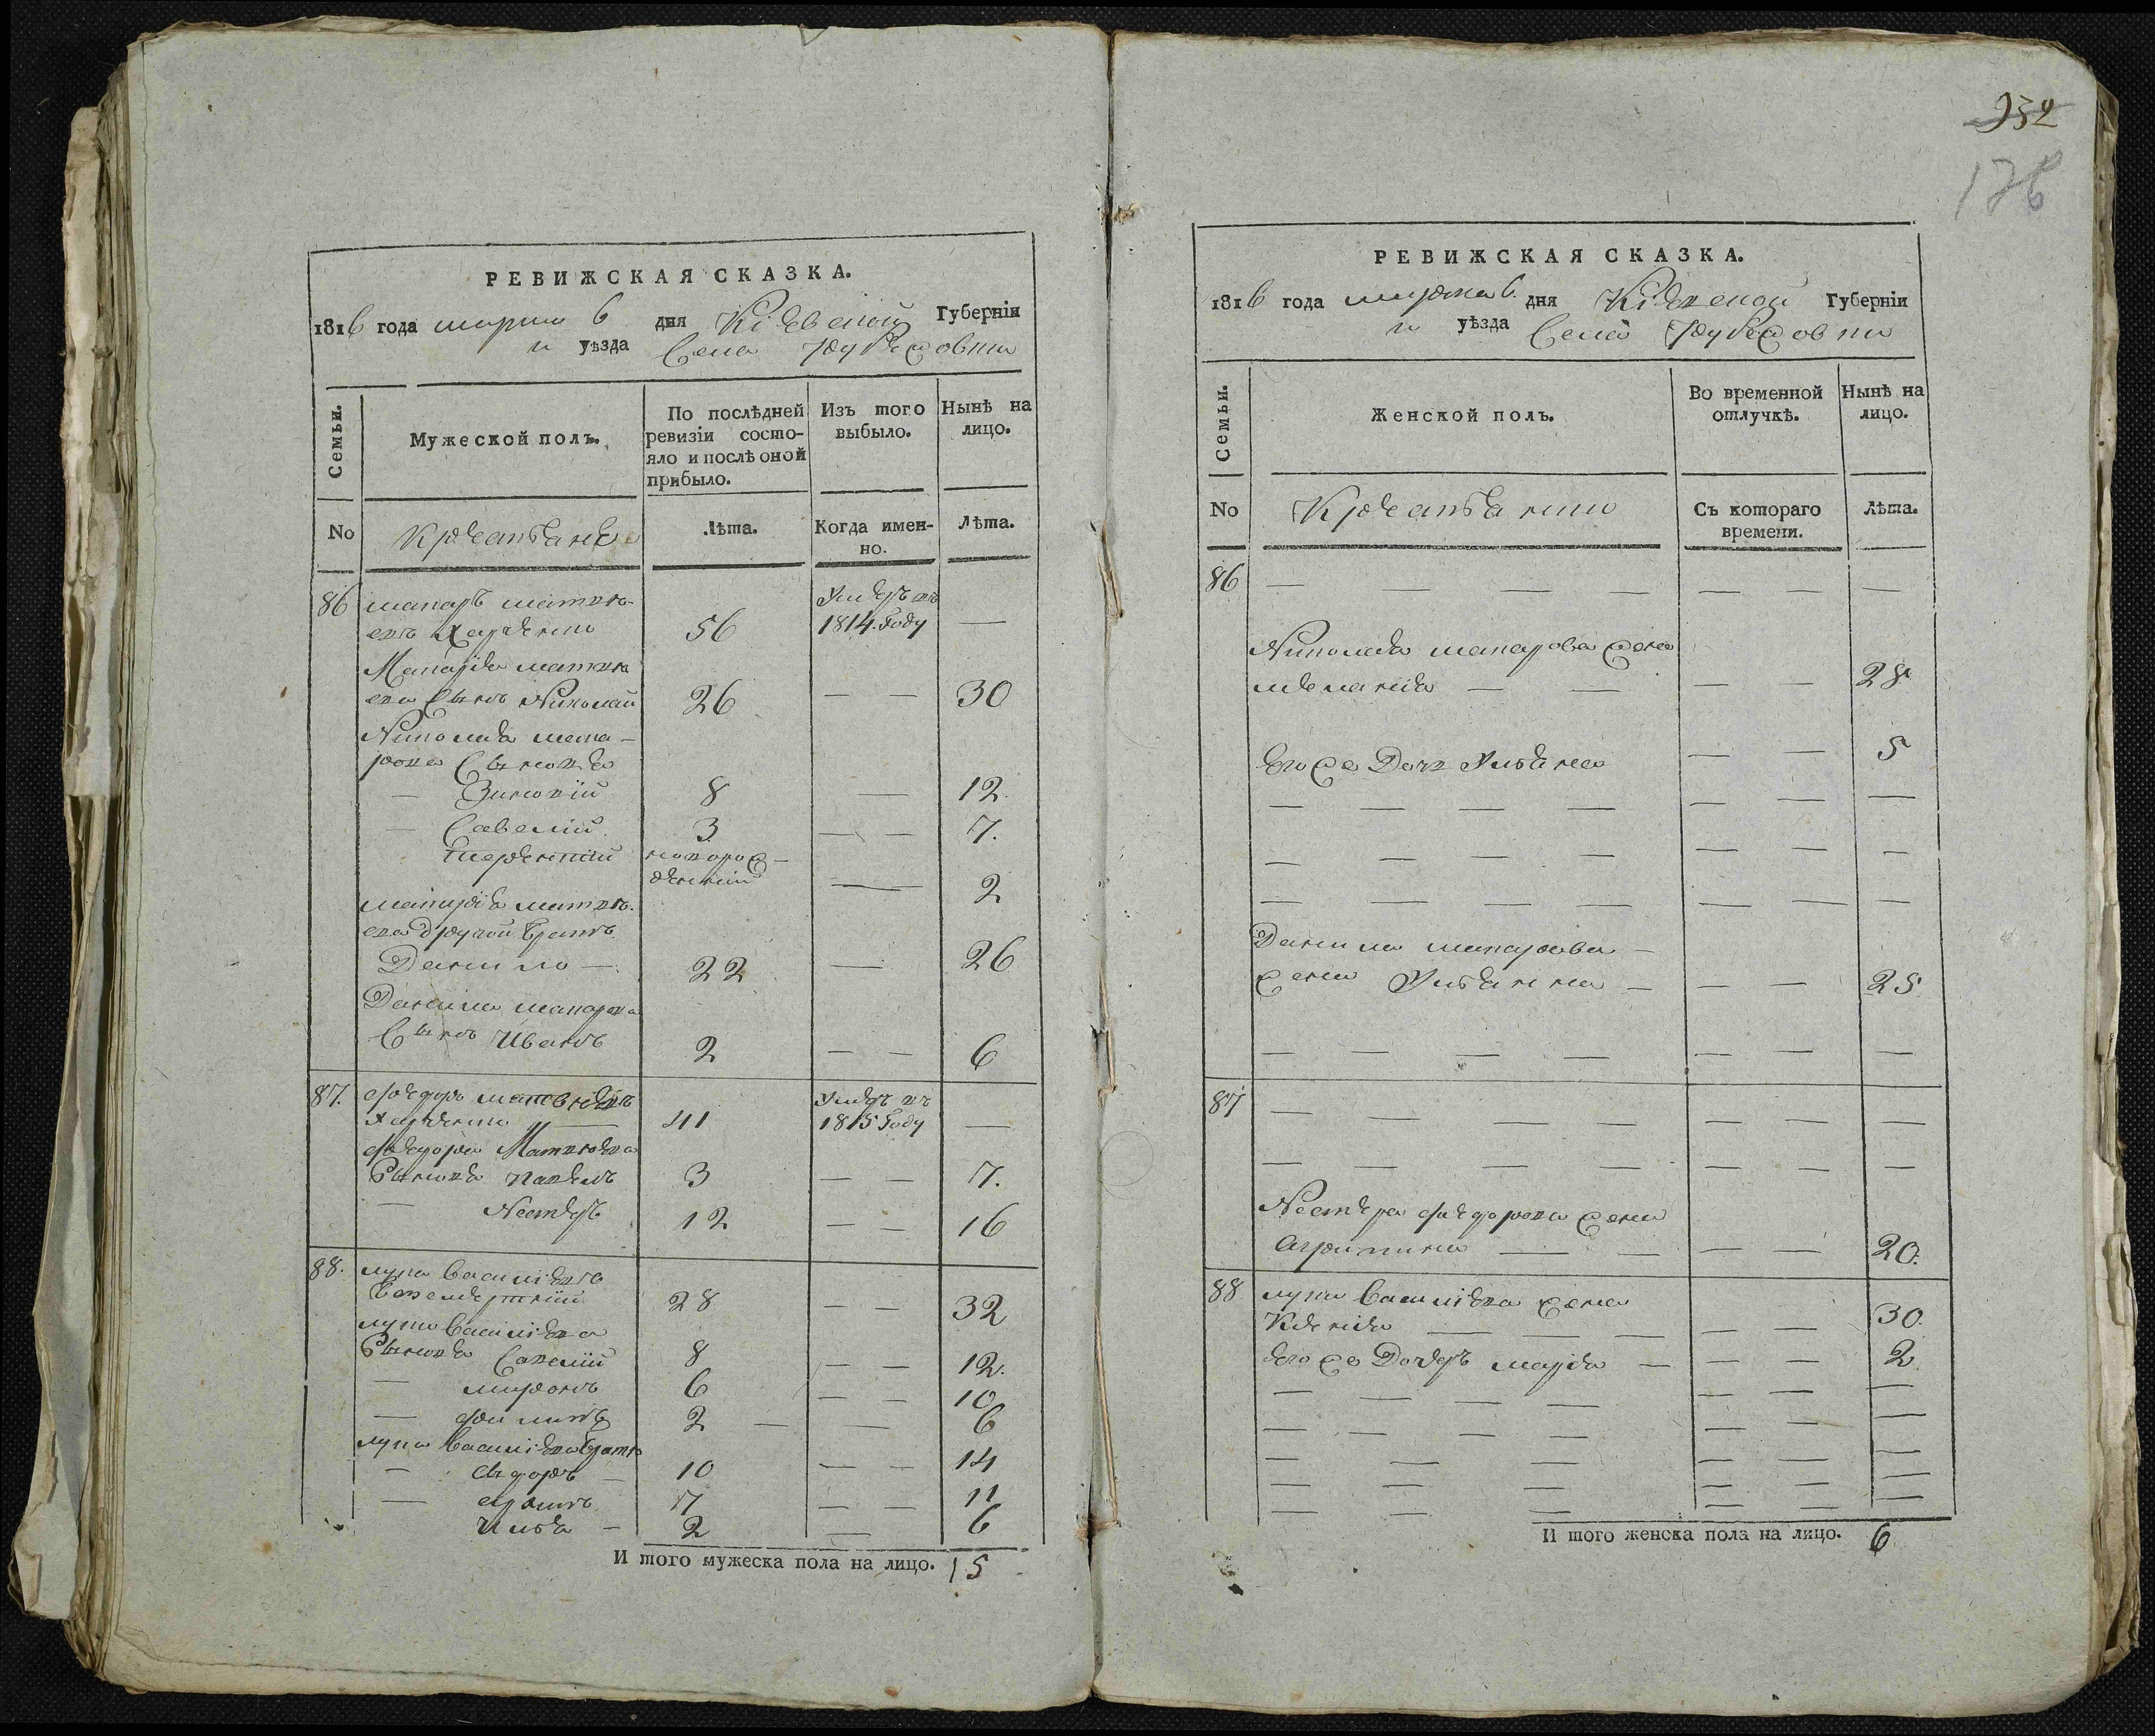 РЕВИЖСКАЯ СКАЗКА.
1816 года марта 6 дня Кіевской Губерніи
и уѣзда Села
Семьи.
Мужеской полъ.
По послѣдней ревизіи состо-
яло и послѣ оной
прибыло.
Изъ того
выбыло.
Нынѣ на
лицо.
No
Крестьяне
Лѣта.
Когда имен-
но.
Лѣта.
86 макаръ матвѣ-
евъ 56 Умеръ въ
1814. Году —
Макарія матвѣ
ева сынъ Николай 26 — — 30
Николая мака-
рова Сыновя
— Зиновій 8 — 12.
— Савелій 3 — — 7.
Терентій новорож-
денній — 2
макарія матвѣ-
ева другой братъ
Данило — 22 — 26
Данила макарова
Сынъ Иванъ 2 — — 6
87. федоръ матвѣевъ
41 Умеръ въ
1815 Году —
федора Матвѣева
Сыновя Павелъ 3 — — 7.
— Несторъ 12 — — 16
88. лука Василіевъ
28 — — 32
луки Василіева
Сыновя Савелій 8 — — 12.
— миронъ 6 — — 10
— филипъ 2 — — 6
луки Василіева братя
— федоръ — 10 — — 14
— 7 — — 11
Илья — 2 — 6
И того мужеска пола на лицо. 15
932
176
РЕВИЖСКАЯ СКАЗКА.
1816 года марта 6. дня Кіевской Губерніи
и уѣзда Села
Семьи.
Женской полъ.
Во временной
отлучкѣ.
Нынѣ на
лицо.
No
Крестьянки
Съ котораго
времени.
Лѣта.
86 — — — — — — —
Николая макарова жена
меланія — — — — 28
Его же Дочь Ульяна — — 5
Данила макарова —
жена Ульянна — — — 25
87 — — — — — — —
Нестера федорова жена
агрипина — — — — 20.
88 луки Василіева жена
Ксенія — — — — — 30.
Его же Дочеръ марія — — — 2
И того женска пола на лицо. 6